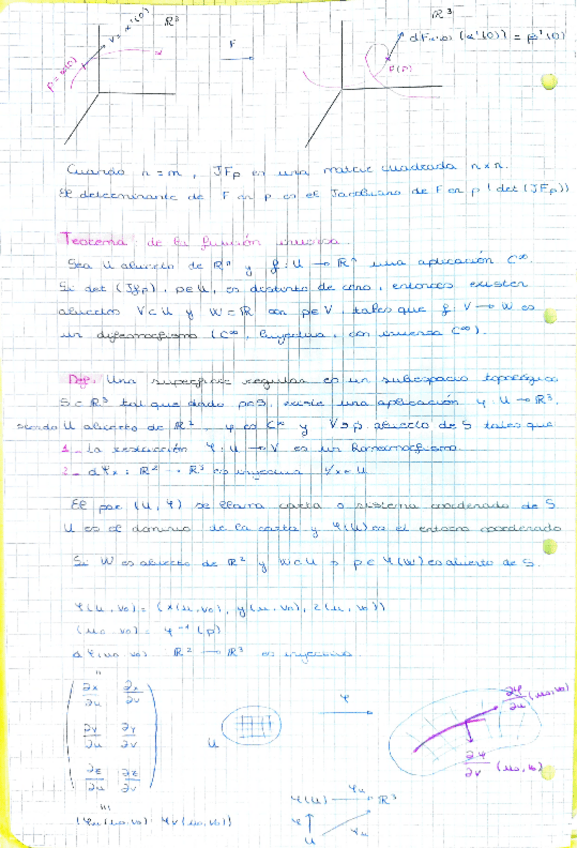 ℝ³
ℝ³
p = α(0)
v = α'(0)
α
F
dFα(0) (α'(0)) = β'(0)
F(p)
Cuando n = m, JFp es una matriz cuadrada n×n.
El determinante de F en p es el Jacobiano de F en p (det (JFp))
Teorema: de la función inversa.
Sea U abierto de ℝⁿ y f: U → ℝⁿ una aplicación C∞.
Si det (Jfp), p∈U, es distinto de cero, entonces existen
abiertos V⊂U y W⊂ℝ con p∈V, tales que f: V → W es
un difeomorfismo (C∞, biyectiva, con inversa C∞).
Def: Una superficie regular es un subespacio topológico
S⊂ℝ³ tal que dado p∈S, existe una aplicación φ: U → ℝ³,
siendo U abierto de ℝ², φ es C∞ y V∋p abierto de S tales que
1.- la restricción φ: U → V es un homeomorfismo
2.- dφx: ℝ² → ℝ³ es inyectiva ∀x∈U
El par (U, φ) se llama carta o sistema coordenado de S
U es el dominio de la carta y φ(U) es el entorno coordenado
Si W es abierto de ℝ² y W⊂U ⇒ p∈φ(W) es abierto de S.
φ(u, v) = (x(u, v), y(u, v), z(u, v))
(u₀, v₀) = φ⁻¹(p)
dφ(u₀, v₀) ℝ² → ℝ³ es inyectiva
∂x/∂u ∂x/∂v
∂y/∂u ∂y/∂v
∂z/∂u ∂z/∂v
(φu(u₀,v₀) φv(u₀,v₀))
U
φ
∂φ/∂u (u₀,v₀)
∂φ/∂v (u₀,v₀)
φ(U) → ℝ³
φ
U